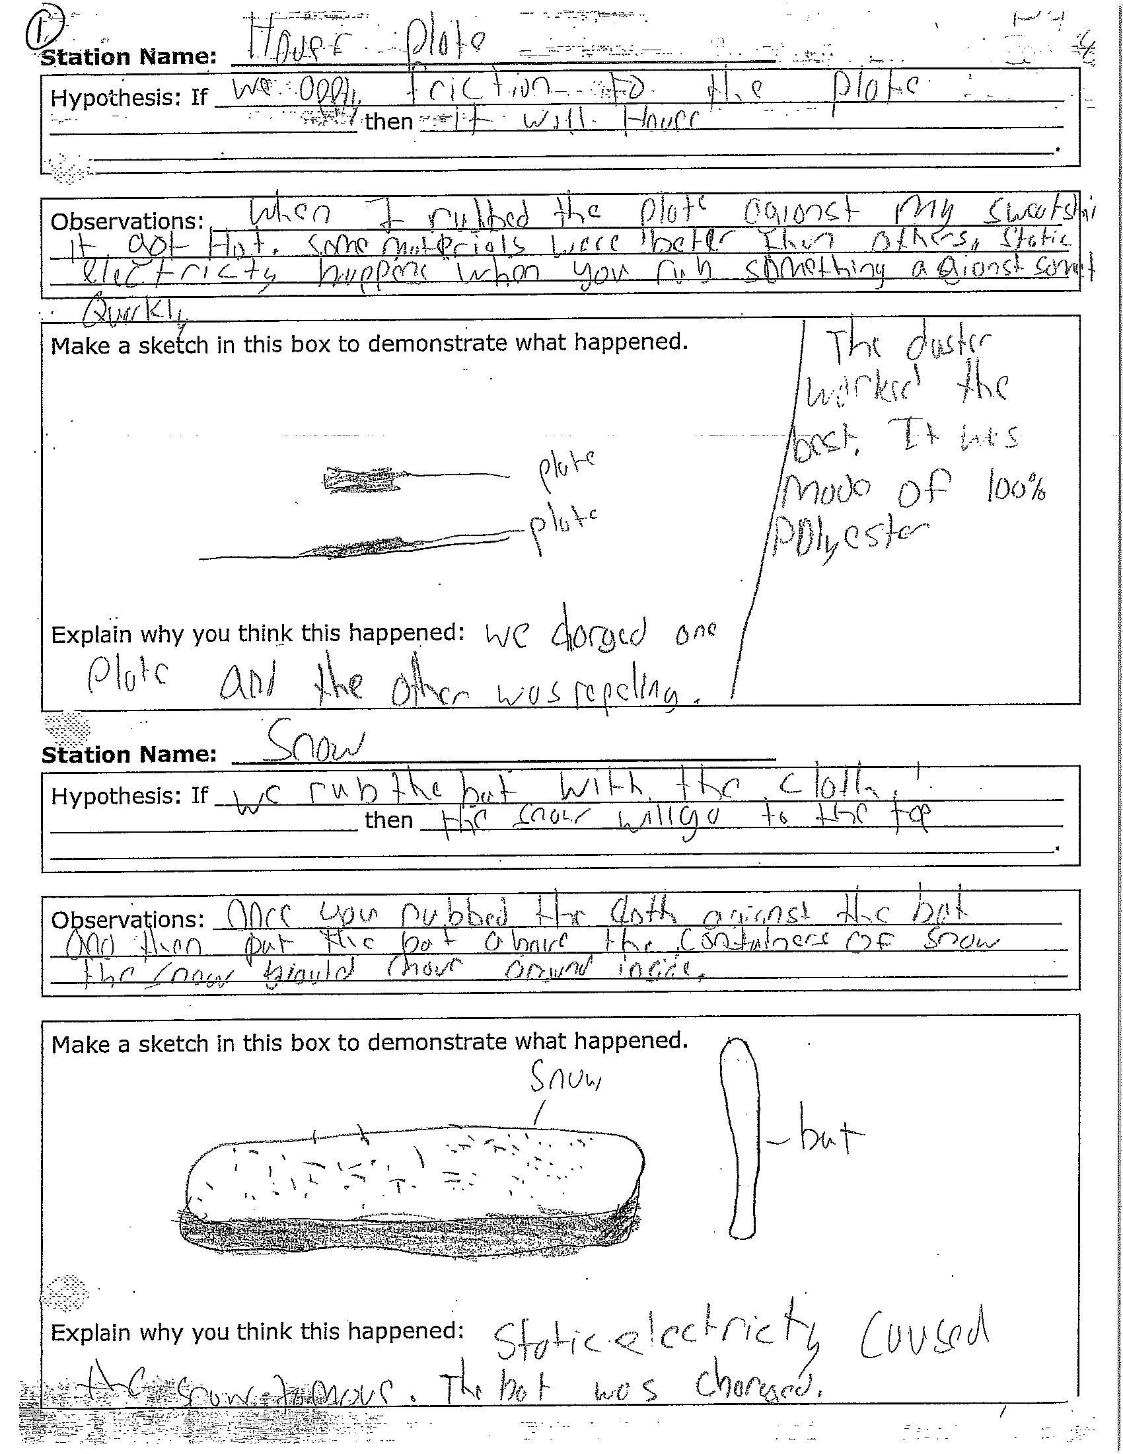 1
Station Name: Hover Plate
Hypothesis: If we apply friction to the plate
then it will Hover
.
Observations: When I rubbed the plate agianst my sweatshi
it got Hot. Some materials were better then others, static
electricty happens when you rub something agianst
Quickly
Make a sketch in this box to demonstrate what happened.
The duster
worked the
best. It was
Made of 100%
Polyester
plate
plate
Explain why you think this happened: we charged one
Plate and the other was repeling.
Station Name: Snow
Hypothesis: If we rub the bat with the cloth,
then the snow will go to the top
.
Observations: Once you rubbed the cloth agianst the bat
and then put the bat above the containers of snow
the snow would move around inside.
Make a sketch in this box to demonstrate what happened.
Snow
bat
Explain why you think this happened: Static electricty caused
the snow to move. The bat was charged.